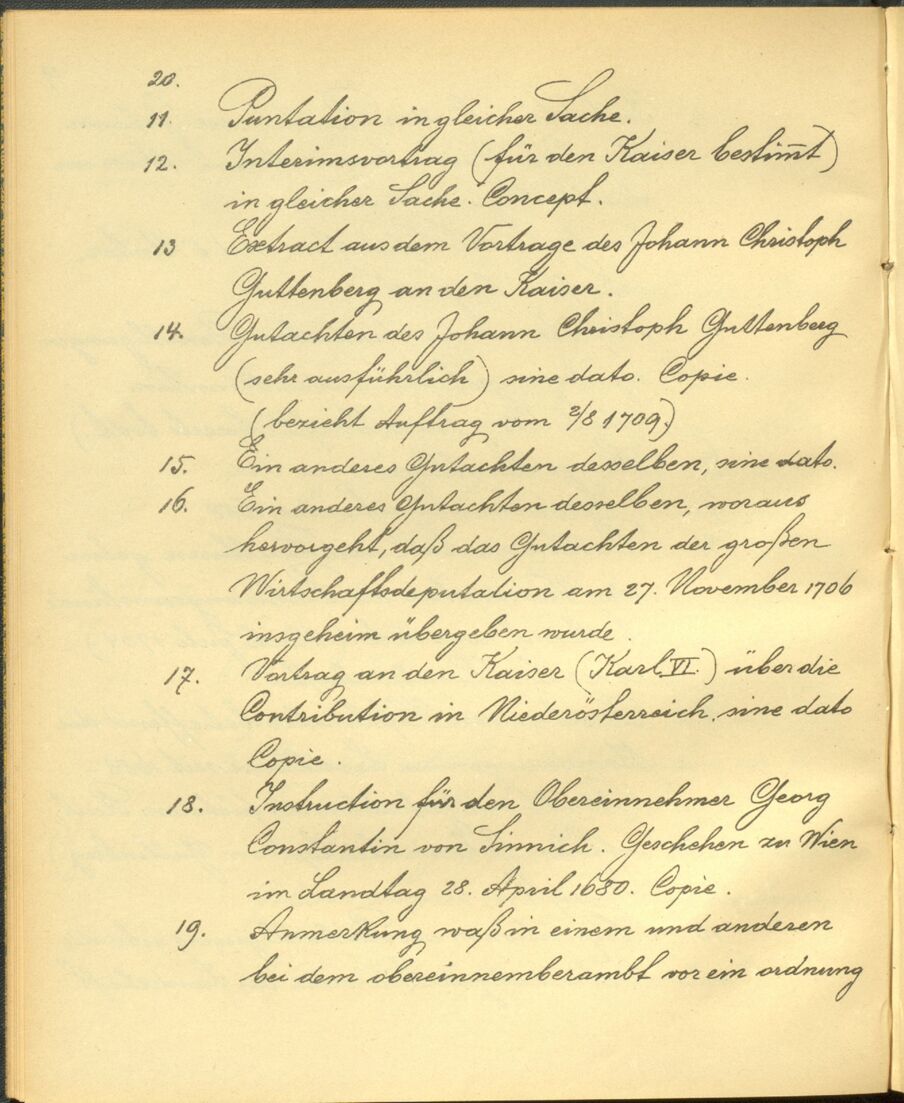 20.
11. Puntation in gleicher Sache.
12. Interimsvortrag (für den Kaiser bestim̅t)
in gleicher Sache. Concept.
13 Extract aus dem Vortrage des Johann Christoph
Guttenberg an den Kaiser.
14. Gutachten des Johann Christoph Guttenberg
(sehr ausführlich) sine dato. Copie.
(bezieht Auftrag vom 2/8 1709.)
15. Ein anderes Gutachten desselben, sine dato.
16. Ein anderes Gutachten desselben, woraus
hervorgeht, daß das Gutachten der großen
Wirtschaftsdeputation am 27. November 1706
insgeheim übergeben wurde.
17. Vortrag an den Kaiser (Karl VI.) über die
Contribution in Niederösterreich, sine dato
Copie.
18. Instruction für den Obereinnehmer Georg
Constantin von Sinnich. Geschehen zu Wien
im Landtag 28. April 1680. Copie.
19. Anmerkung waß in einem und anderen
bei dem obereinnemberambt vor ein ordnung